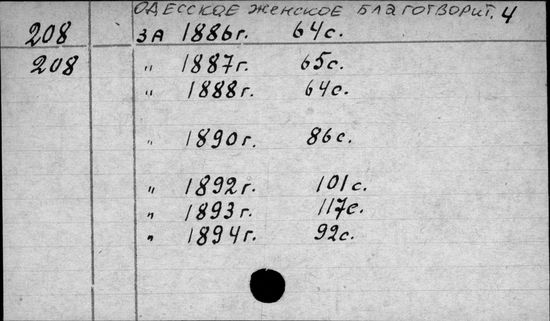 ОДЕССКОЕ ЖЕНСКОЕ БЛАГОТВОРИТ. 4
208 ЗА 1886г. 64с.
208 " 1887г. 65с.
" 1888г. 64с.
" 1890г. 86с.
" 1892г. 101с.
" 1893г. 117с.
" 1894г. 92с.